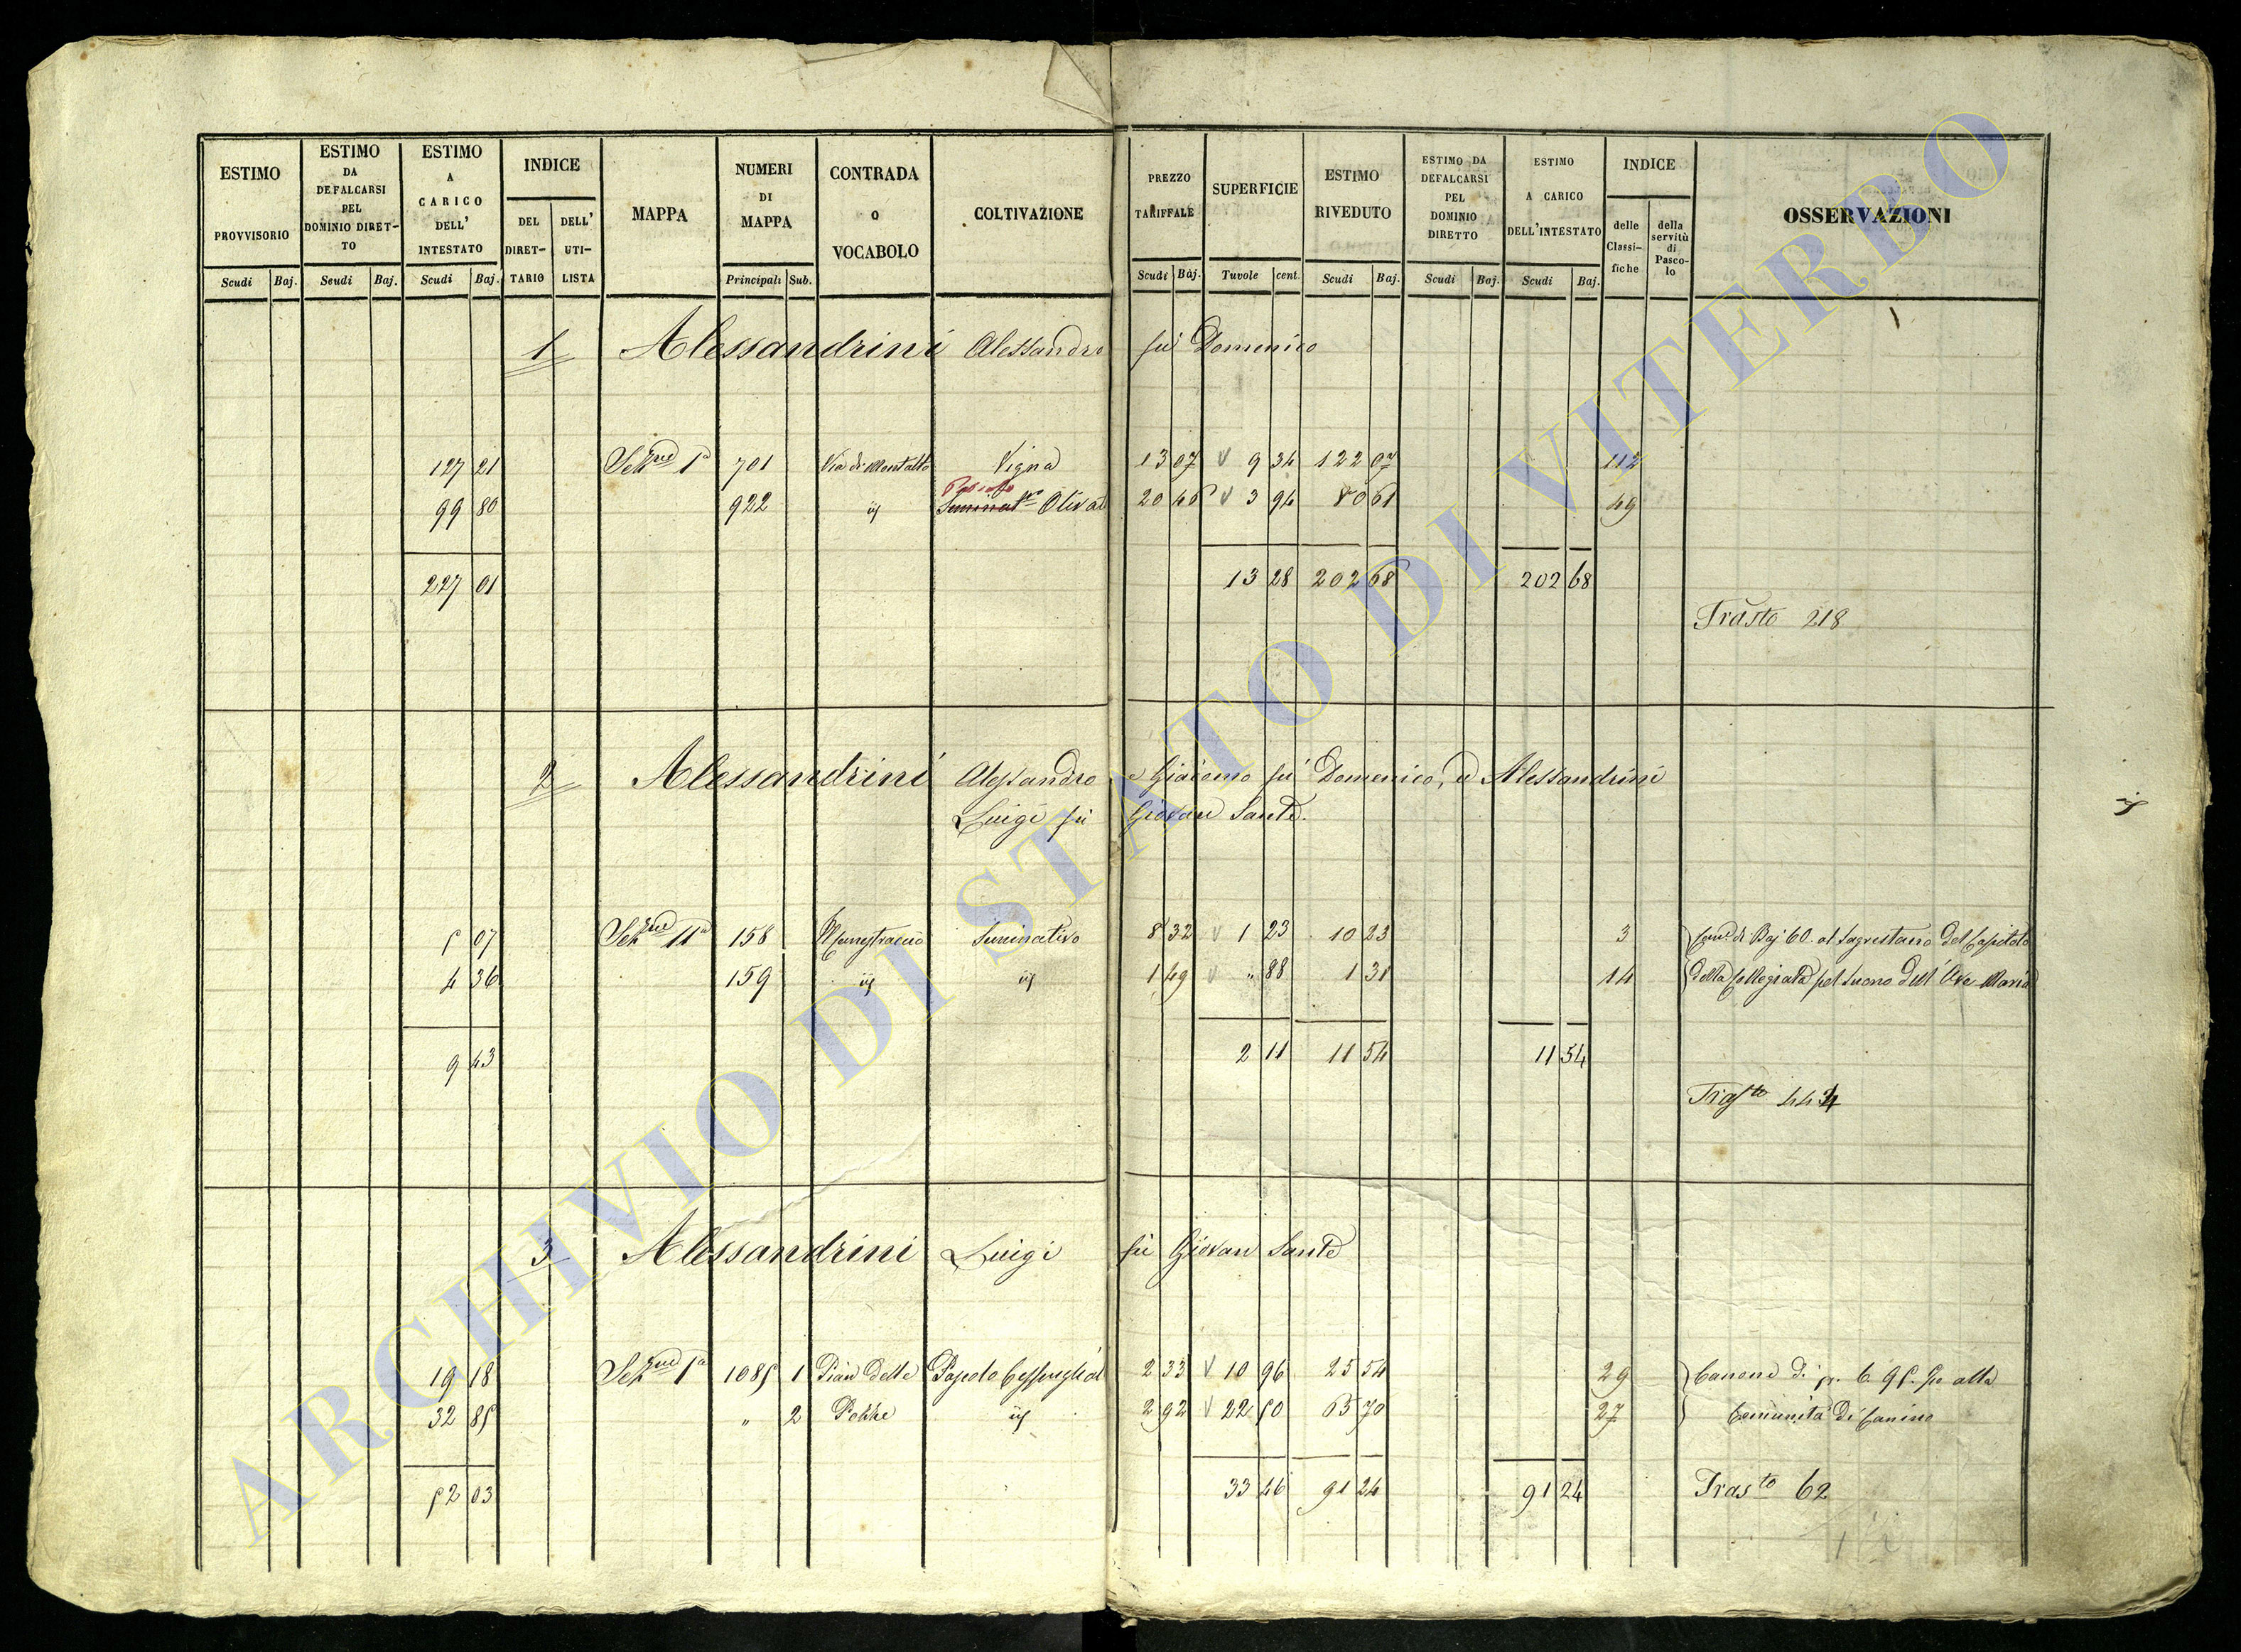 ESTIMO PROVVISORIO Scudi Baj.
ESTIMO DA DEFALCARSI PEL DOMINIO DIRET-TO Scudi Baj.
ESTIMO A CARICO DELL' INTESTATO Scudi Baj.
INDICE DEL DIRET-TARIO DELL' UTI-LISTA
MAPPA
NUMERI DI MAPPA Principali Sub.
CONTRADA O VOCABOLO
COLTIVAZIONE
PREZZO TARIFFALE Scudi Baj.
SUPERFICIE Tavole cent.
ESTIMO RIVEDUTO Scudi Baj.
ESTIMO DA DEFALCARSI PEL DOMINIO DIRETTO Scudi Baj.
ESTIMO A CARICO DELL'INTESTATO Scudi Baj.
INDICE delle Classi-fiche della servitù di Pasco-lo
OSSERVAZIONI
1 Alessandrini Alessandro fù Domenico
127 21 Sezne 1a 701 Via di Montalto Vigna 13 07 9 34 122 07 112
Pascolo
99 80 922 id Seminatvo Olivat 20 46 3 94 80 61 49
227 01 13 28 202 68 202 68
Trasto 218
2 Alessandrini Alessandro e Giacomo fù Domenico, e Alessandrini
Luigi fù Giovan Sante.
5 07 Sezne 11a 158 Seminativo 8 32 1 23 10 23 3 di Baj 60 al Sagrestano del Capitolo
4 36 159 id id 1 49 " 88 1 31 14 della Collegiata pel suono dell' Ave Maria
9 43 2 11 11 54 11 54
Trasto
3 Alessandrini Luigi fù Giovan Sante
19 18 Sezne 1a 1085 1 Pian delle Pascolo Cespugliat 2 33 10 96 25 54 29 Canone di 6. 95. alla
32 85 " 2 id 2 92 22 50 65 70 27 Comunità di Canino
52 03 33 46 91 24 91 24 Trasto 62
ARCHIVIO DI STATO DI VITERBO